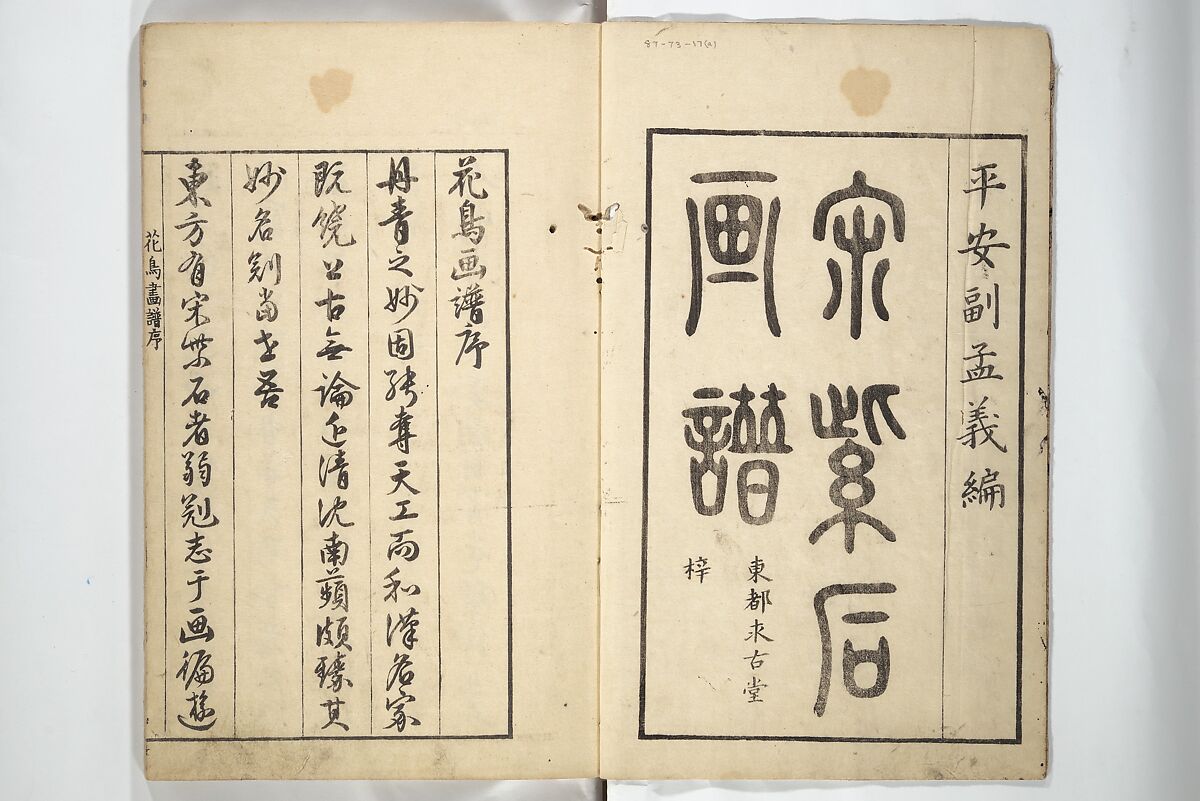 87-73-17(a)
平安副孟義編
宋紫石
画譜
東都求古堂
梓
花鳥画譜序
丹青之妙固能奪天工而和漢名家
既饒上古無論近清沈南蘋頗臻其
妙名剏当世吾
東方有宋紫石者弱冠志于画徧遊
花鳥畫譜序